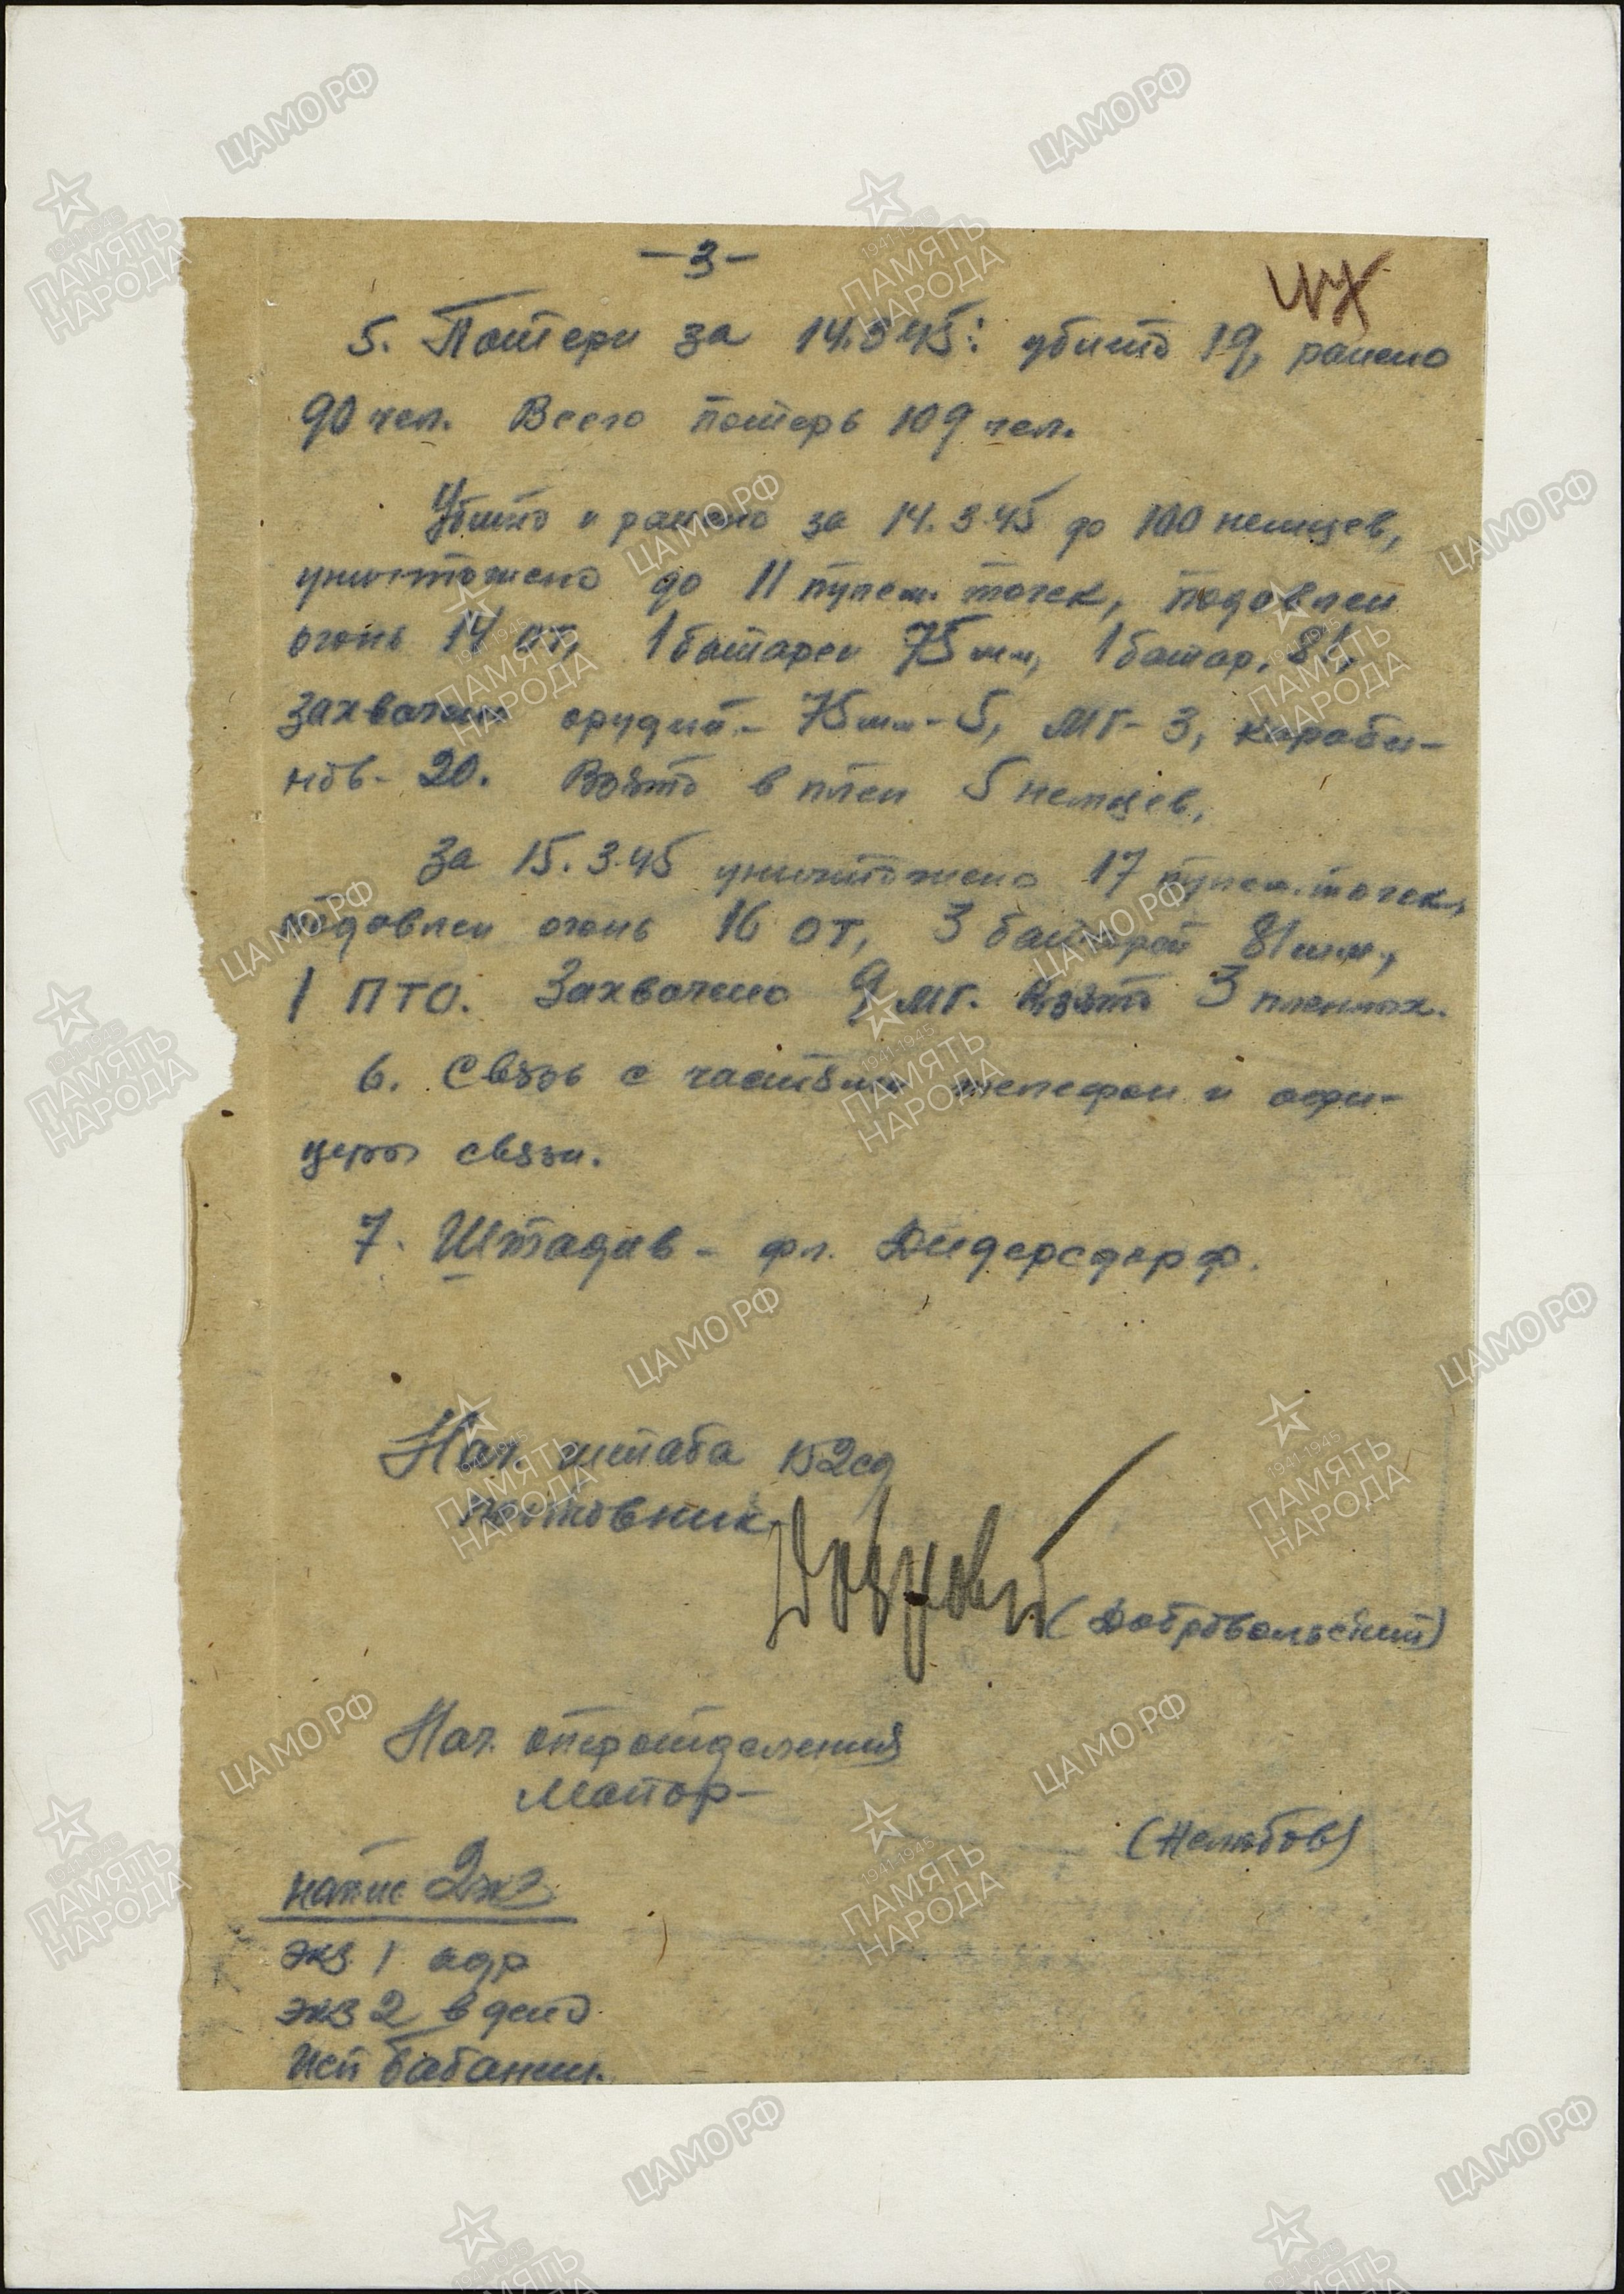 -3-
5. Потери за 14.3.45: убито 19, ранено
90 чел. Всего потерь 109 чел.
Убито и ранено за 14.3.45 до 100 немцев,
уничтожено до 11 пулем. точек, подавлен
огонь 14 от, 1 батареи 75 мм, 1 батар. 81,
захвачено орудий - 75 мм - 5, МГ - 3, караби-
нов - 20. Взято в плен 5 немцев,
За 15.3.45 уничтожено 17 пулем. точек,
подавлен огонь 16 ОТ, 3 батарей 81 мм,
1 ПТО. Захвачено 9 МГ. Взято 3 пленных.
6. Связь с частями телефон и офи-
церы связи.
7. Штадив - фл. Дидерсдорф.
Нач. штаба 152 сд
полковник
(Добровольский)
Нач. оперотделения
Майор -
(Нелюбов)
напис 2 экз
экз. 1 адр
экз 2 в дело
Исп Бабанин.
ЦАМО РФ
1941-1945
ПАМЯТЬ
НАРОДА